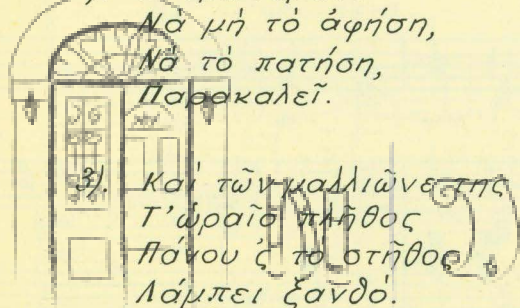 Νὰ μὴ τὸ ἀφήσῃ,
Νὰ τὸ πατήσῃ,
Παρακαλεῖ.
3). Καὶ τῶν μαλλιῶνε της
Τ' ὡραῖο πλῆθος
Πάνου ς τὸ στῆθος
Λάμπει ξανθό.